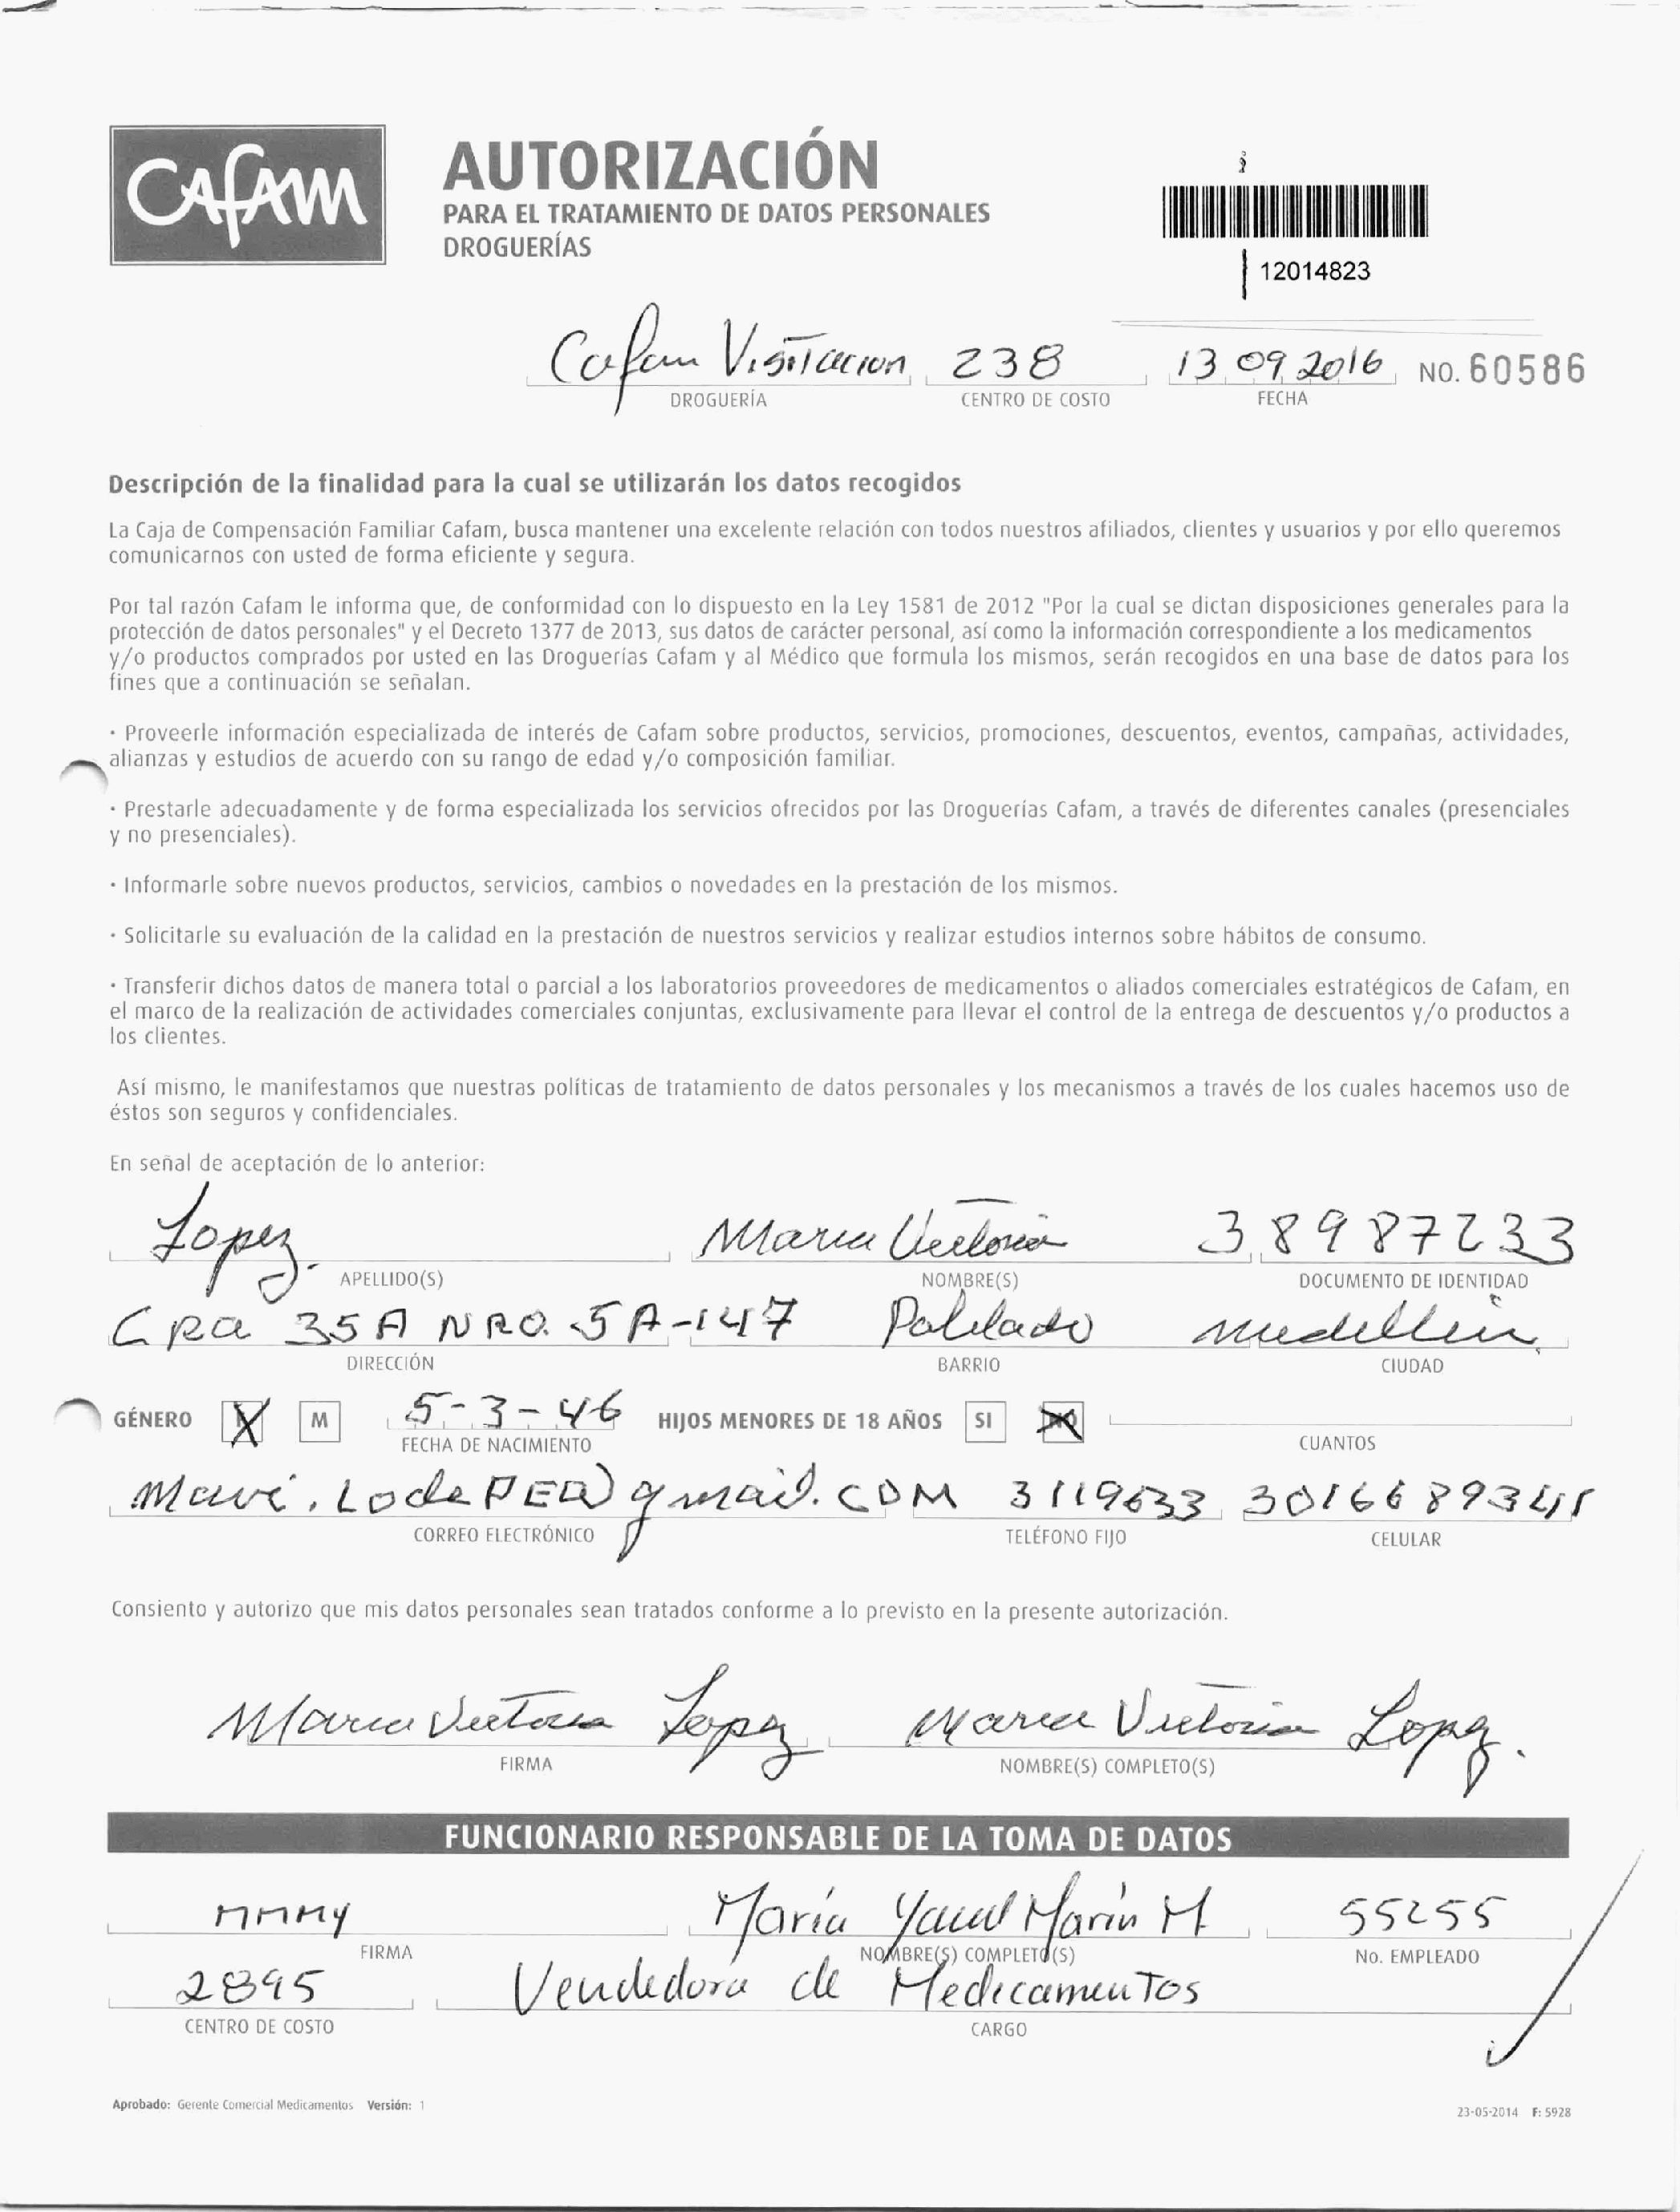 Cafam
AUTORIZACIÓN
PARA EL TRATAMIENTO DE DATOS PERSONALES
DROGUERÍAS
12014823
Cafam Visitacion 238 13 09 2016 NO. 60586
DROGUERÍA CENTRO DE COSTO FECHA
Descripción de la finalidad para la cual se utilizarán los datos recogidos
La Caja de Compensación Familiar Cafam, busca mantener una excelente relación con todos nuestros afiliados, clientes y usuarios y por ello queremos
comunicarnos con usted de forma eficiente y segura.
Por tal razón Cafam le informa que, de conformidad con lo dispuesto en la Ley 1581 de 2012 "Por la cual se dictan disposiciones generales para la
protección de datos personales" y el Decreto 1377 de 2013, sus datos de carácter personal, así como la información correspondiente a los medicamentos
y/o productos comprados por usted en las Droguerías Cafam y al Médico que formula los mismos, serán recogidos en una base de datos para los
fines que a continuación se señalan.
· Proveerle información especializada de interés de Cafam sobre productos, servicios, promociones, descuentos, eventos, campañas, actividades,
alianzas y estudios de acuerdo con su rango de edad y/o composición familiar.
· Prestarle adecuadamente y de forma especializada los servicios ofrecidos por las Droguerías Cafam, a través de diferentes canales (presenciales
y no presenciales).
· Informarle sobre nuevos productos, servicios, cambios o novedades en la prestación de los mismos.
· Solicitarle su evaluación de la calidad en la prestación de nuestros servicios y realizar estudios internos sobre hábitos de consumo.
· Transferir dichos datos de manera total o parcial a los laboratorios proveedores de medicamentos o aliados comerciales estratégicos de Cafam, en
el marco de la realización de actividades comerciales conjuntas, exclusivamente para llevar el control de la entrega de descuentos y/o productos a
los clientes.
Así mismo, le manifestamos que nuestras políticas de tratamiento de datos personales y los mecanismos a través de los cuales hacemos uso de
éstos son seguros y confidenciales.
En señal de aceptación de lo anterior:
Lopez. Maria Victoria 38987233
APELLIDO(S) NOMBRE(S) DOCUMENTO DE IDENTIDAD
Cra 35A NRO. 5A-147 Poblado Medellin
DIRECCIÓN BARRIO CIUDAD
GÉNERO X M 5-3-46 HIJOS MENORES DE 18 AÑOS SI X
FECHA DE NACIMIENTO CUANTOS
3119633
CORREO ELECTRÓNICO TELÉFONO FIJO CELULAR
Consiento y autorizo que mis datos personales sean tratados conforme a lo previsto en la presente autorización.
Maria Victoria Lopez Maria Victoria Lopez.
FIRMA NOMBRE(S) COMPLETO(S)
FUNCIONARIO RESPONSABLE DE LA TOMA DE DATOS
MMMy María Marín M 55255
FIRMA NOMBRE(S) COMPLETO(S) No. EMPLEADO
2895 Vendedora de Medicamentos
CENTRO DE COSTO CARGO
Aprobado: Gerente Comercial Medicamentos Versión: 1
23-05-2014 F: 5928